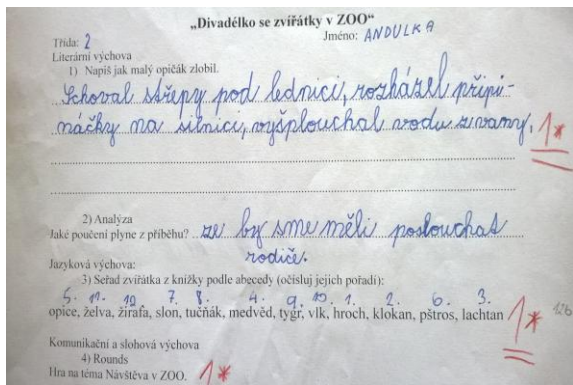 „Divadélko se zvířátky v ZOO“
Třída: 2 Jméno: ANDULKA
Literární výchova
1) Napiš jak malý opičák zlobil.
Schoval střepy pod lednici, rozházel připí-
náčky na silnici, vyšplouchal vodu z vany. 1*
2) Analýza
Jaké poučení plyne z příběhu? ze by sme měli poslouchat
rodiče.
Jazyková výchova:
3) Seřaď zvířátka z knížky podle abecedy (očísluj jejich pořadí):
5. 11. 12. 7. 8. 4. 9. 10. 1. 2. 6. 3.
opice, želva, žirafa, slon, tučňák, medvěd, tygr, vlk, hroch, klokan, pštros, lachtan 1* 126
Komunikační a slohová výchova
4) Rounds
Hra na téma Návštěva v ZOO. 1*